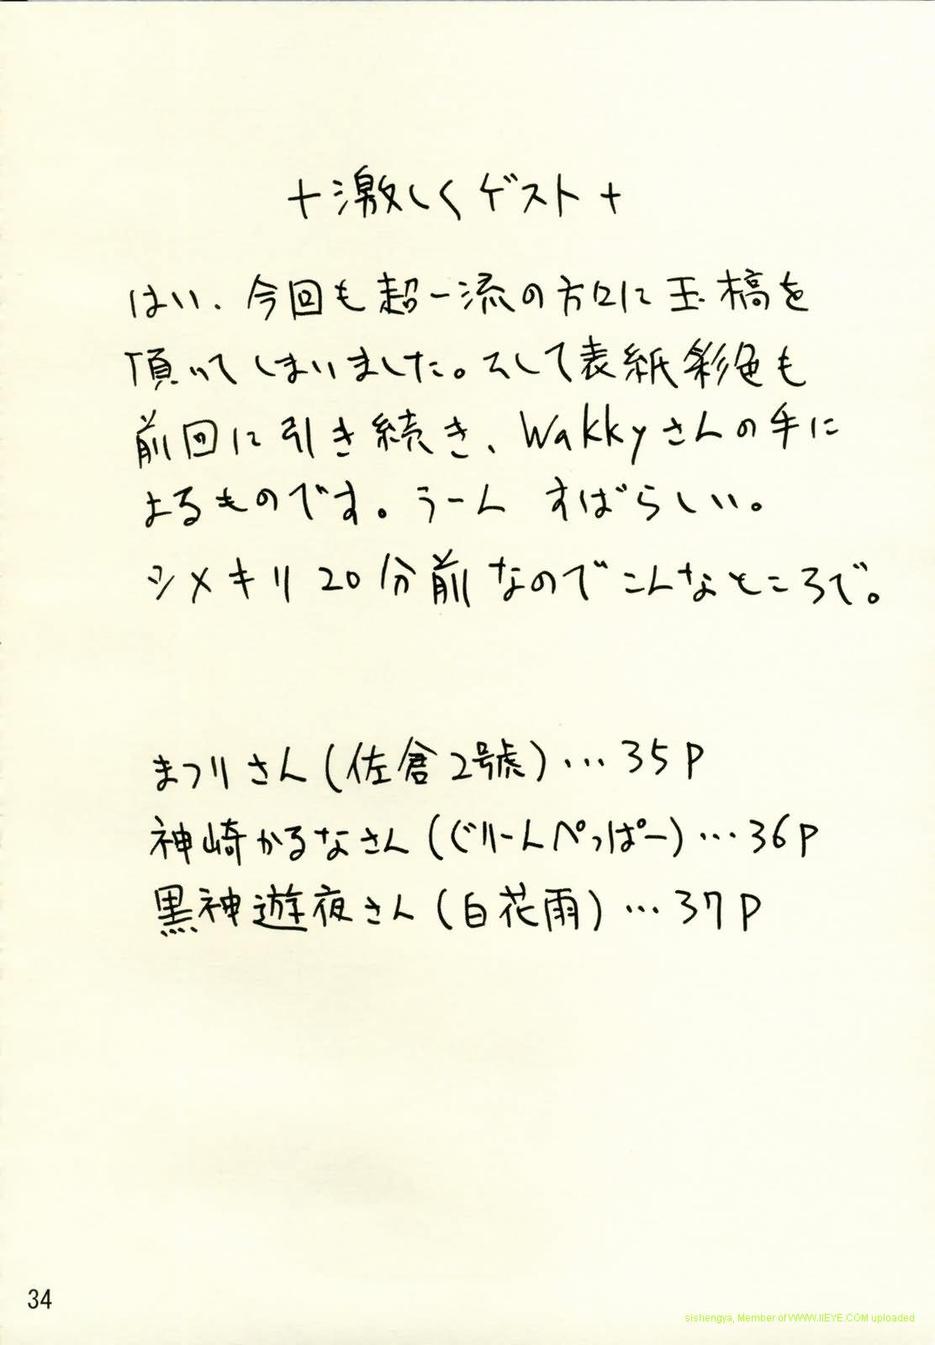 +激しくゲスト+
はい、今回も超一流の方々に玉稿を
頂いてしまいました。そして表紙彩色も
前回に引き続き、Wakkyさんの手に
よるものです。うーん すばらしい。
シメキリ20分前なのでこんなところで。
まつりさん(佐倉2號)…35P
神崎かるなさん(ぐりーんぺっぱー)…36P
黒神遊夜さん(白花雨)…37P
34
sishengya, Member of WWW.IIEYE.COM uploaded